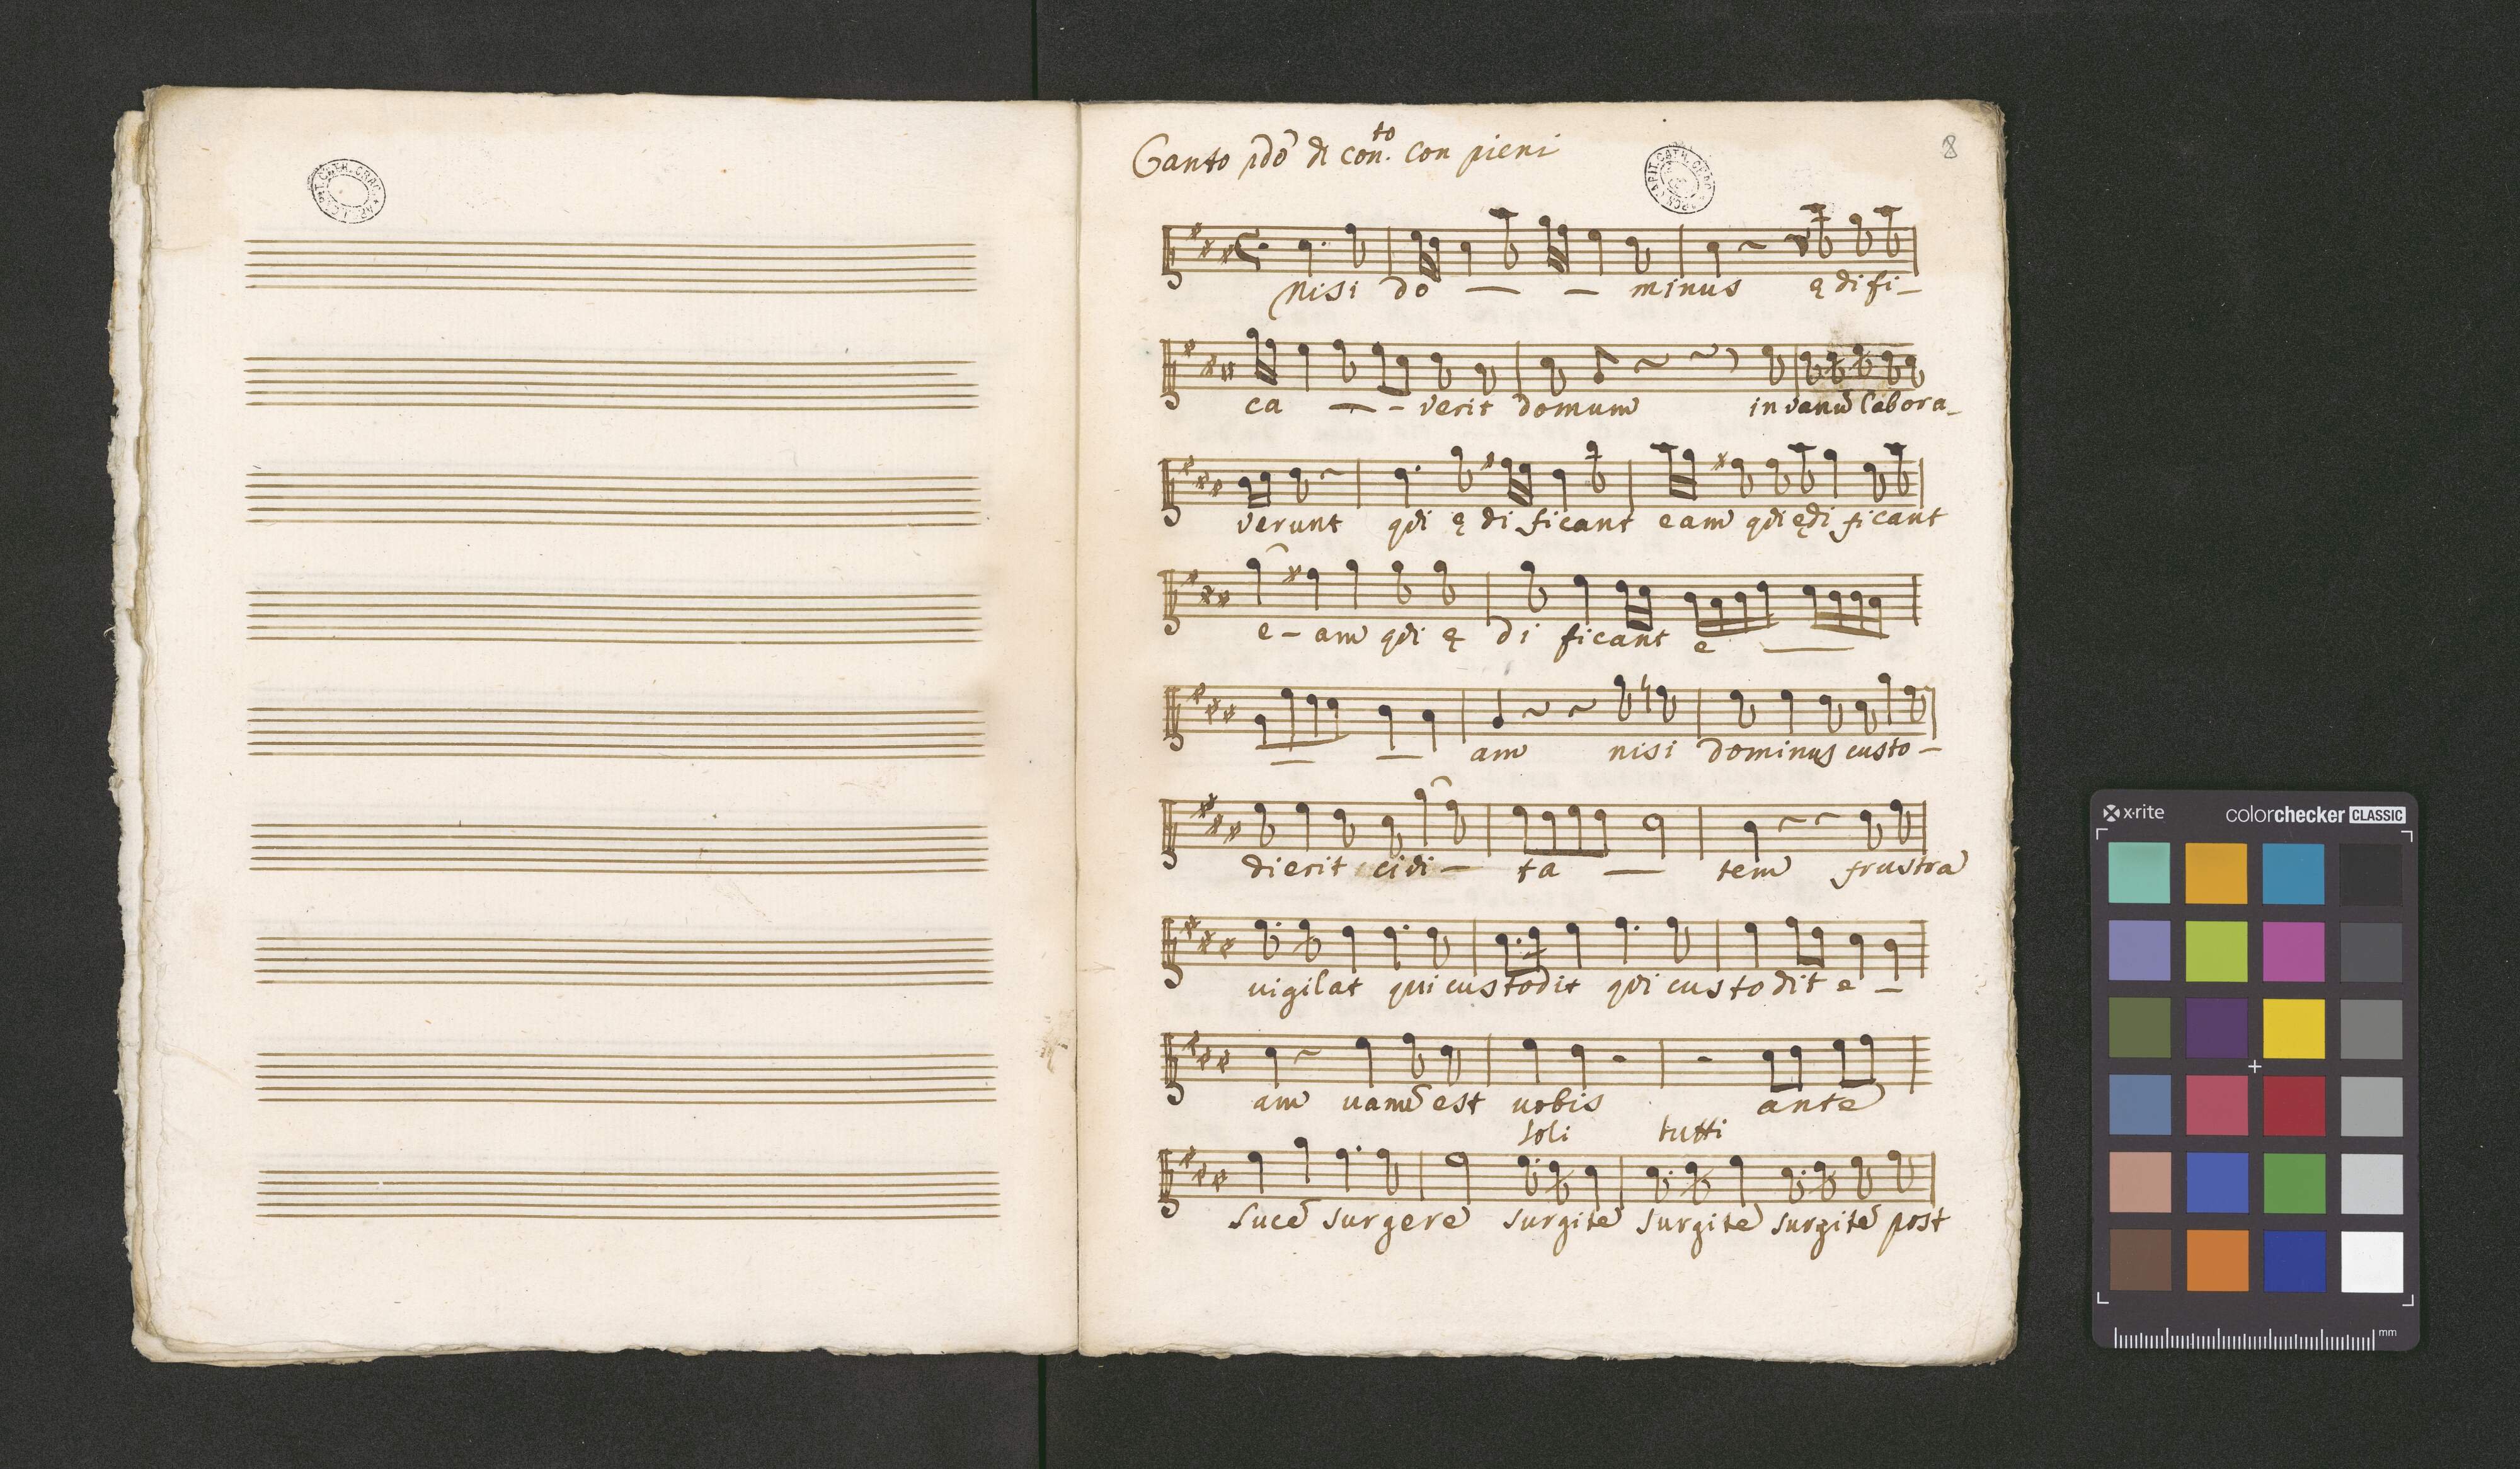 8
Canto pdō di con.to con pieni
ARCH. CAPIT. CATH. CRAC.
nisi do — — minus ędifi-
ca — - verit domum in vanū labora-
verunt qvi ędificant eam qvi ędificant
e - am qvi ę di ficant e —
— — am nisi dominus custo -
dierit civi - ta — tem frustra
uigilat qui custodit qvi custodit e -
am uanū est uobis ante
soli tutti
luce surgere surgite surgite surgite post
x·rite colorchecker CLASSIC
mm